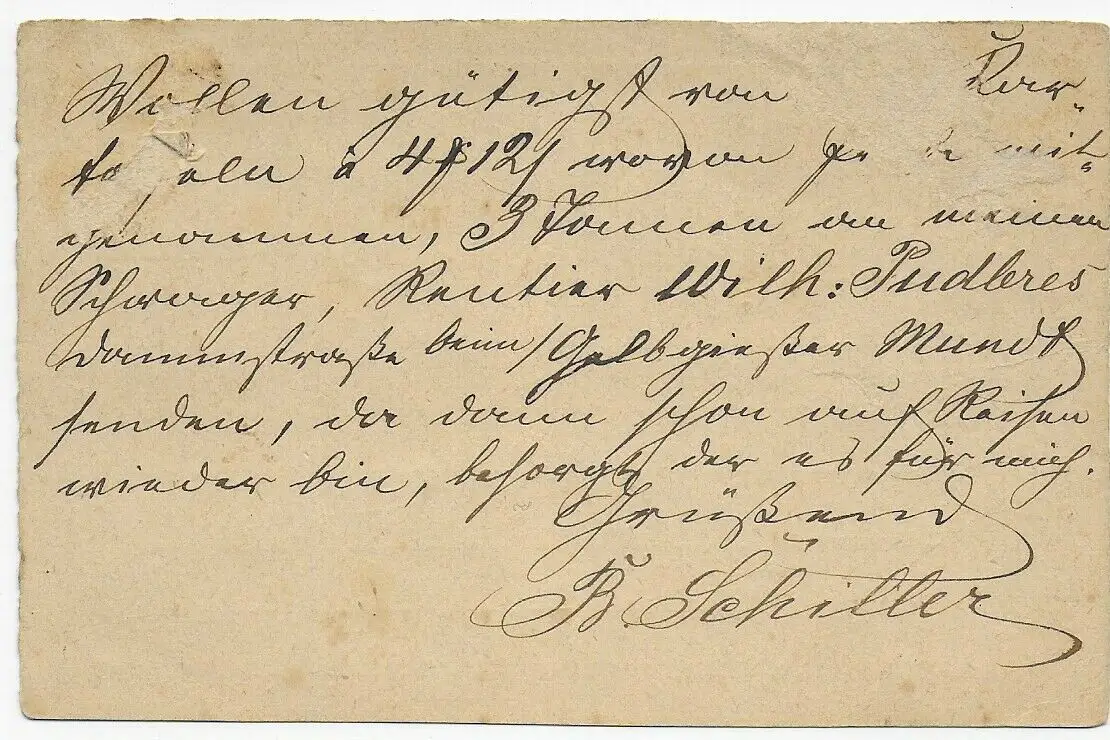 Wollen gütigst von Kar-
to eln à 4 12/ wovon mit-
genommen, 3 Tonnen an meinen
Schwager, Rentier Wilh: Pudleres
Dammstraße beim Gelbgießer Mundt
senden, da dann schon auf Reisen
wieder bin, besorgt der es für mich.
Grüßend
B. Schiller